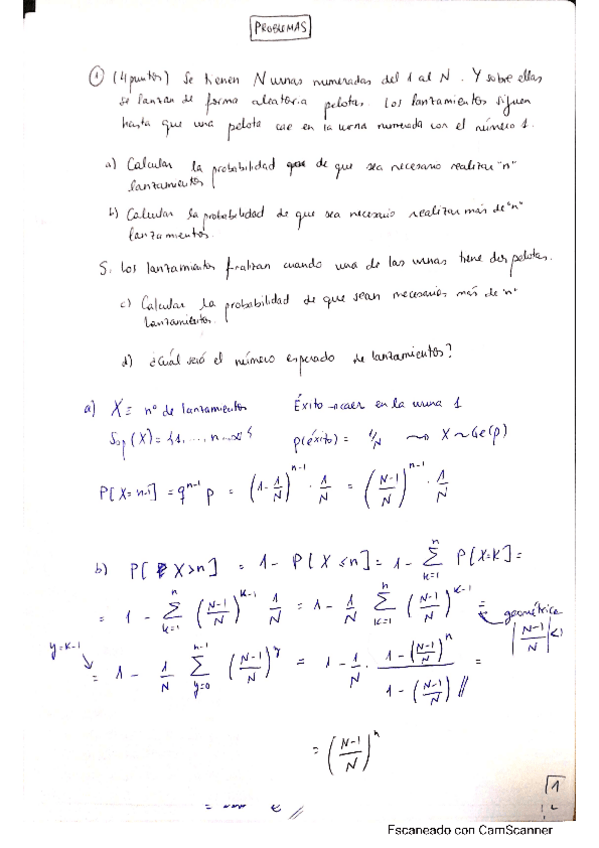 PROBLEMAS
① (4 puntos) Se tienen N urnas numeradas del 1 al N. Y sobre ellas
se lanzan de forma aleatoria pelotas. Los lanzamientos siguen
hasta que una pelota cae en la urna numerada con el número 1.
a) Calcular la probabilidad de que sea necesario realizar "n"
lanzamientos
b) Calcular la probabilidad de que sea necesario realizar más de "n"
lanzamientos.
Si los lanzamientos finalizan cuando una de las urnas tiene dos pelotas.
c) Calcular la probabilidad de que sean necesarios más de "n"
lanzamientos.
d) ¿Cuál será el número esperado de lanzamientos?
a) X = nº de lanzamientos Éxito → caer en la urna 1
Sop(X) = {1, ..., n ... ∞} p(éxito) = 1/N ⇝ X ~ Ge(p)
P[X = n] = q^{n-1} p = (1 - 1/N)^{n-1} · 1/N = ((N-1)/N)^{n-1} · 1/N
b) P[X > n] = 1 - P[X ≤ n] = 1 - Σ_{k=1}^{n} P[X=k] =
= 1 - Σ_{k=1}^{n} ((N-1)/N)^{k-1} 1/N = 1 - 1/N Σ_{k=1}^{n} ((N-1)/N)^{k-1} = geométrica |(N-1)/N| < 1
y=k-1 = 1 - 1/N Σ_{y=0}^{n-1} ((N-1)/N)^y = 1 - 1/N · (1 - ((N-1)/N)^n)/(1 - ((N-1)/N)) // =
= ((N-1)/N)^n
1
Escaneado con CamScanner